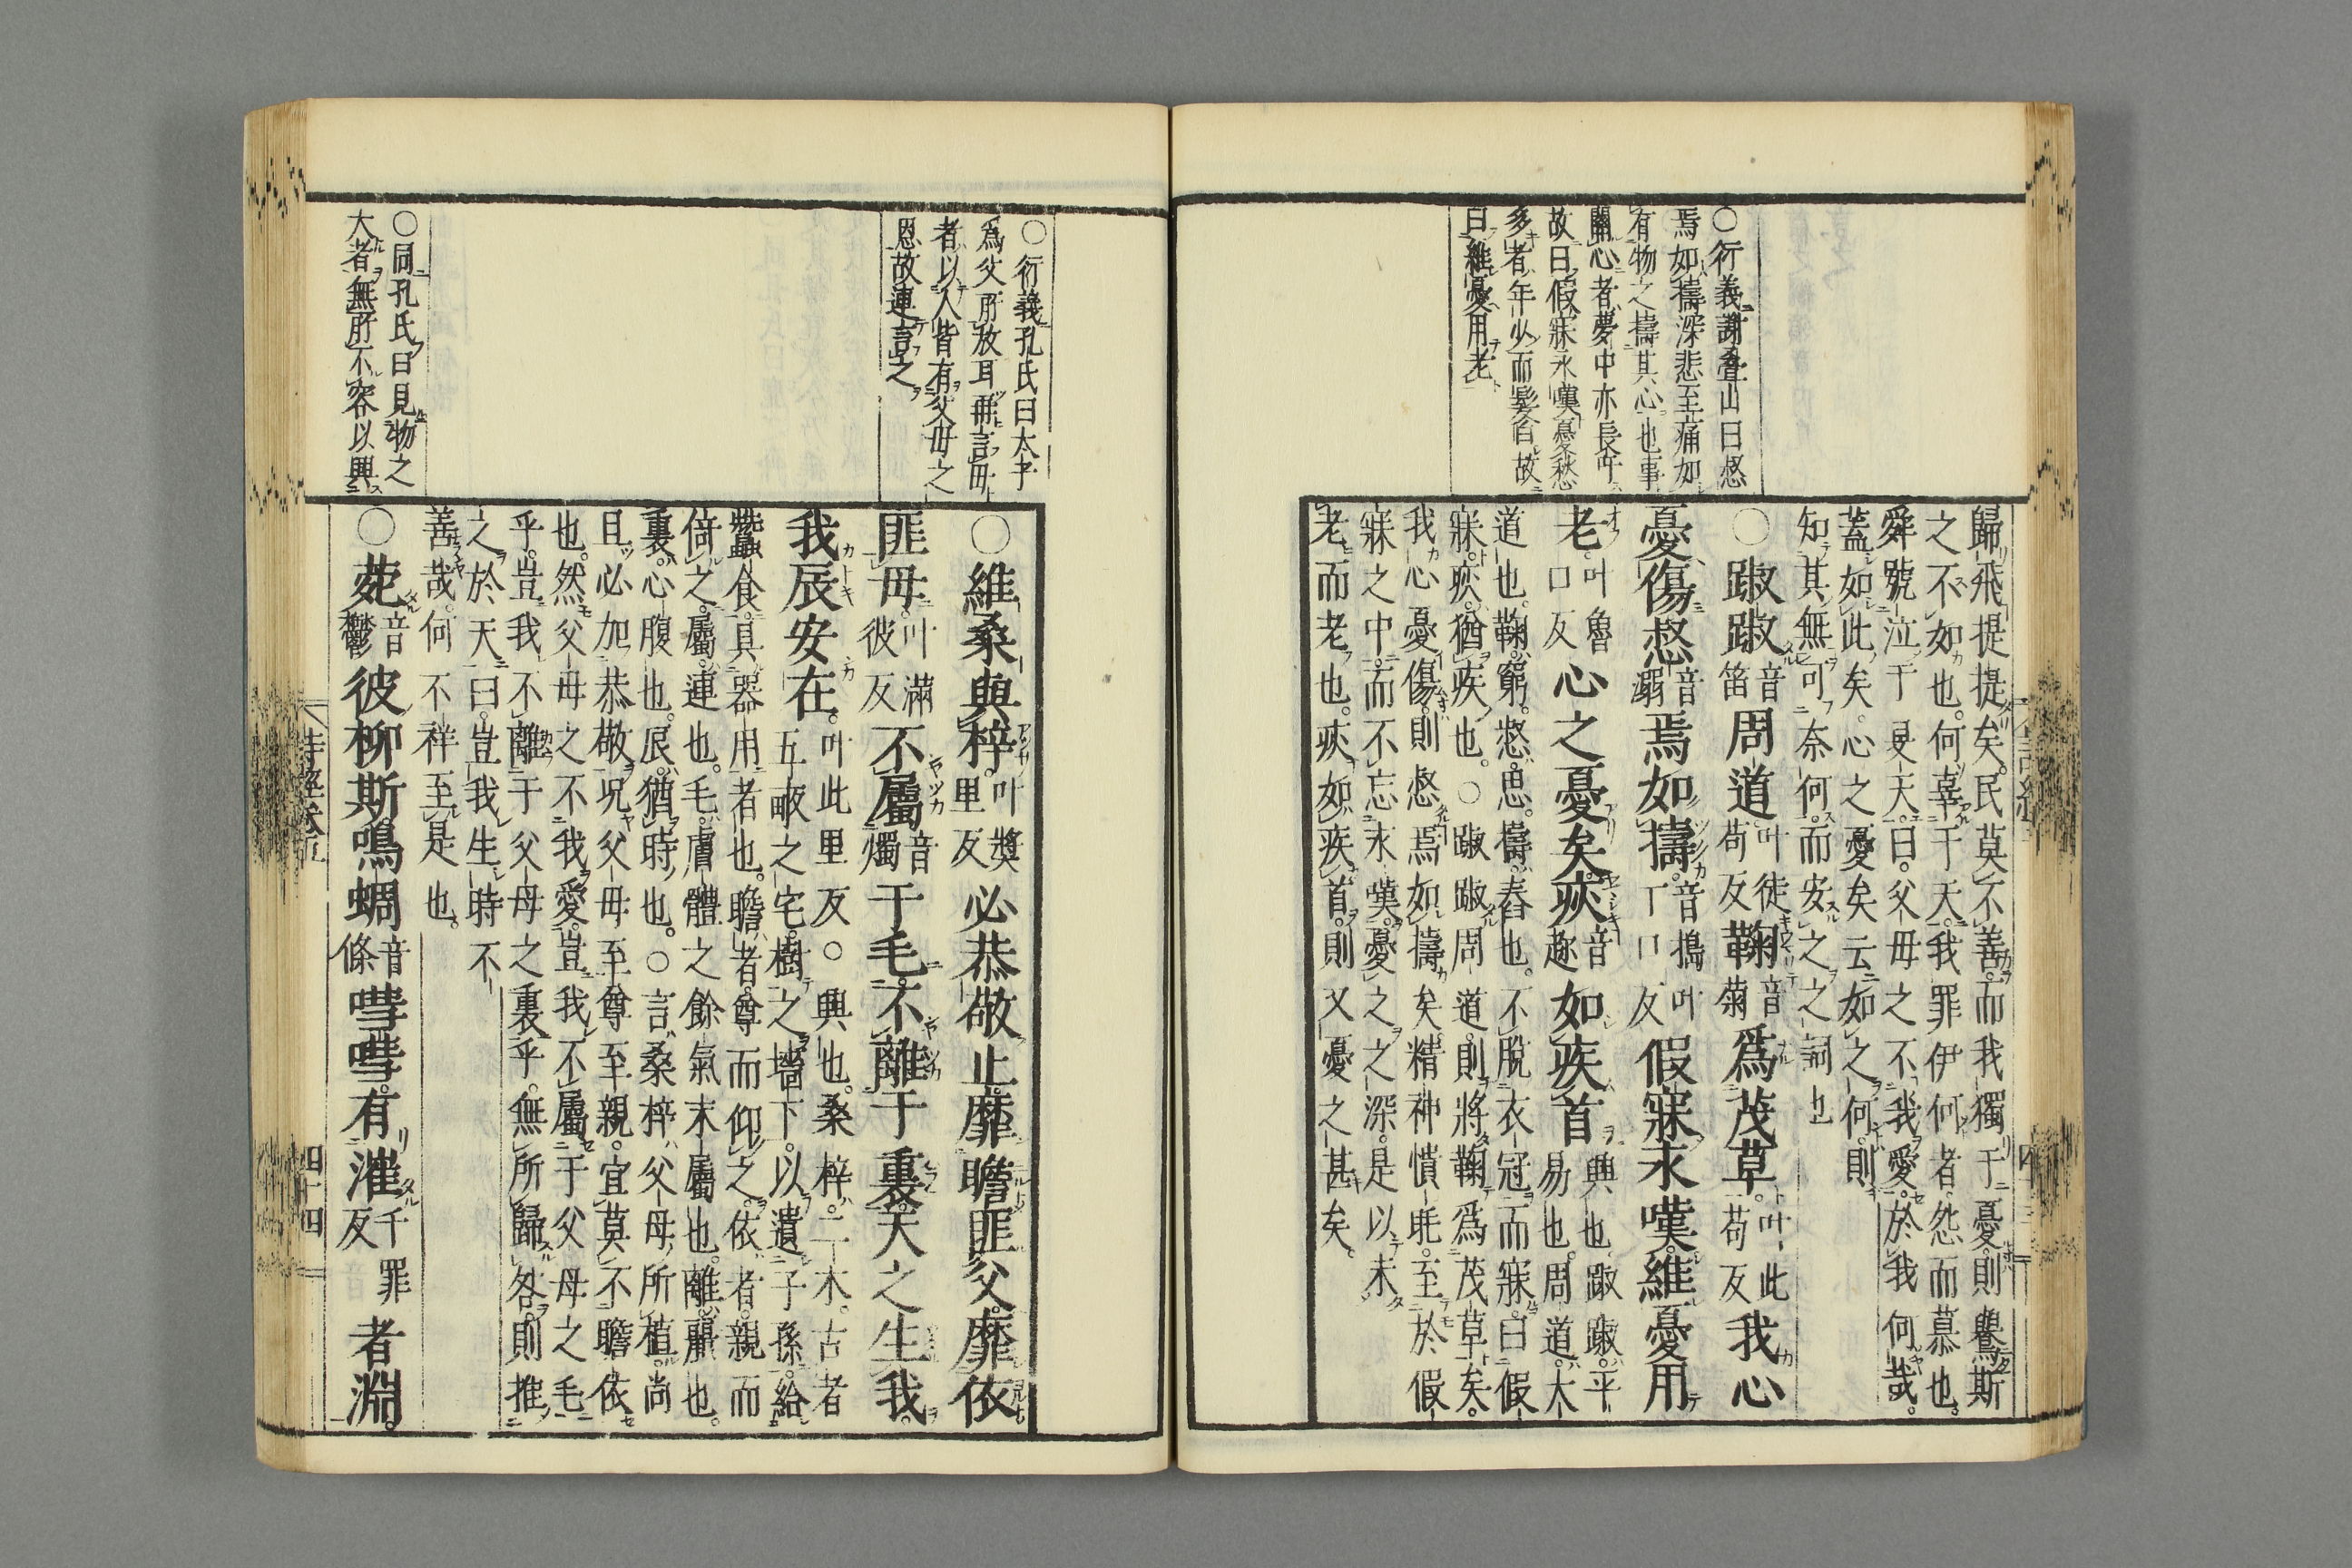 ○衍義謝疊山曰惄
焉如擣深悲至痛如
有物之擣其心也事
關心者夢中亦長吁
故曰假寐永嘆憂愁
多者年少而髮白故
曰維憂用老
歸飛提提矣民莫不善而我獨于憂則鸒斯
之不如也何辜于天我罪伊何者怨而慕也
舜號泣于旻天曰父母之不我愛於我何哉
蓋如此矣心之憂矣云如之何則
知其無可奈何而安之之詞也
○踧踧音笛周道叶徒苟反鞠音菊爲茂草叶此苟反我心
憂傷惄音溺焉如擣音擣叶丁口反假寐永嘆維憂用
老叶魯口反心之憂矣疢音趂如疾首興也踧踧平易也周道大
道也鞠窮惄思擣舂也不脫衣冠而寐曰假
寐疢猶疾也○踧踧周道則將鞠爲茂草矣
我心憂傷則惄焉如擣矣精神憒眊至於假
寐之中而不忘永嘆憂之之深是以未
老而老也疢如疾首則又憂之甚矣
○衍義孔氏曰太子
爲父所放耳而言母
者以人皆有父母之
恩故連言之
○同孔氏曰見物之
大者無所不容以興
○維桑與梓叶獎里反必恭敬止靡瞻匪父靡依
匪母叶滿彼反不屬音燭于毛不離于裏天之生我
我辰安在叶此里反○興也桑梓二木古者五畝之宅樹之墻下以遺子孫給
蠶食具器用者也瞻者尊而仰之依者親而
倚之屬連也毛膚體之餘氣末屬也離麗也
裏心腹也辰猶時也○言桑梓父母所植尚
且必加恭敬况父母至尊至親宜莫不瞻依
也然父母之不我愛豈我不屬于父母之毛
乎豈我不離于父母之裏乎無所歸咎則推
之於天曰豈我生時不
善哉何不祥至是也
○菀音鬱彼柳斯鳴蜩音條嘒嘒有漼千罪反者淵
詩經卷五
四十四